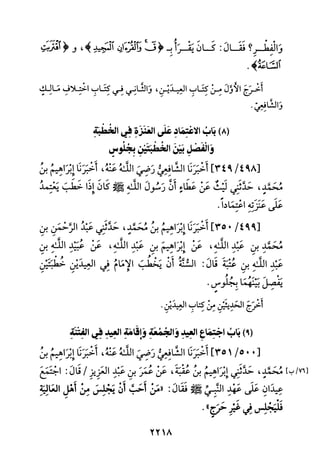 وَالْفِطْرِ؟ فَقَالَ: كَانَ يَقْرَأُ بِـ ﴿قٓ ۚ وَٱلْقُرْءَانِ ٱلْمَجِيدِ﴾، و ﴿ٱقْتَرَبَتِ
ٱلسَّاعَةُ﴾.
أَخْرَجَ الأَوَّلَ مِنْ كِتَابِ العِيدَيْنِ، وَالثَّانِيَ فِي كِتَابِ اخْتِلافِ مَالِكٍ
وَالشَّافِعِيِّ.
(٨) بَابُ الاعْتِمَادِ عَلَى العَنَزَةِ فِي الخُطْبَةِ
وَالْفَصْلِ بَيْنَ الخُطْبَتَيْنِ بِجُلُوسٍ
[٣٤٩/٤٩٨] أَخْبَرَنَا الشَّافِعِيُّ رَضِيَ اللَّهُ عَنْهُ، أَخْبَرَنَا إِبْرَاهِيمُ بنُ
مُحَمَّدٍ، حَدَّثَنِي لَيْثٌ عَنْ عَطَاءٍ أَنَّ رَسُولَ اللَّهِ ﷺ كَانَ إِذَا خَطَبَ يَعْتَمِدُ
عَلَى عَنَزَتِهِ اعْتِمَاداً.
[٣٥٠/٤٩٩] أَخْبَرَنَا إِبْرَاهِيمُ بنُ مُحَمَّدٍ، حَدَّثَنِي عَبْدُ الرَّحْمَنِ بنِ
مُحَمَّدِ بنِ عَبْدِ اللَّهِ، عَنْ إِبْرَاهِيمَ بنِ عَبْدِ اللَّهِ، عَنْ عُبَيْدِ اللَّهِ بنِ
عَبْدِ اللَّهِ بنِ عُتْبَةَ قَالَ: السُّنَّةُ أَنْ يَخْطُبَ الإِمَامُ فِي العِيدَيْنِ خُطْبَتَيْنِ
يَفْصِلُ بَيْنَهُمَا بِجُلُوسٍ.
أَخْرَجَ الحَدِيثَيْنِ مِنْ كِتابِ العِيدَيْنِ.
(٩) بَابُ اجْتِمَاعِ العِيدِ وَالجُمُعَةِ وَإِقَامَةِ العِيدِ فِي الفِتْنَةِ
[٣٥١/٥٠٠] أَخْبَرَنَا الشَّافِعِيُّ رَضِيَ اللَّهُ عَنْهُ، أَخْبَرَنَا إِبْرَاهِيمُ بنُ
مُحَمَّدٍ، حَدَّثَنِي إِبْرَاهِيمُ بنُ عُقْبَةَ، عَنْ عُمَرَ بنِ عَبْدِ العَزِيزِ / قَالَ: اجْتَمَعَ [٧٦/ب]
عِيدَانِ عَلَى عَهْدِ النَّبِيِّ ﷺ فَقَالَ: «مَنْ أَحَبَّ أَنْ يَجْلِسَ مِنْ أَهْلِ العَالِيَةِ
فَلْيَجْلِسْ فِي غَيْرِ حَرَجٍ».
٢٢١٨